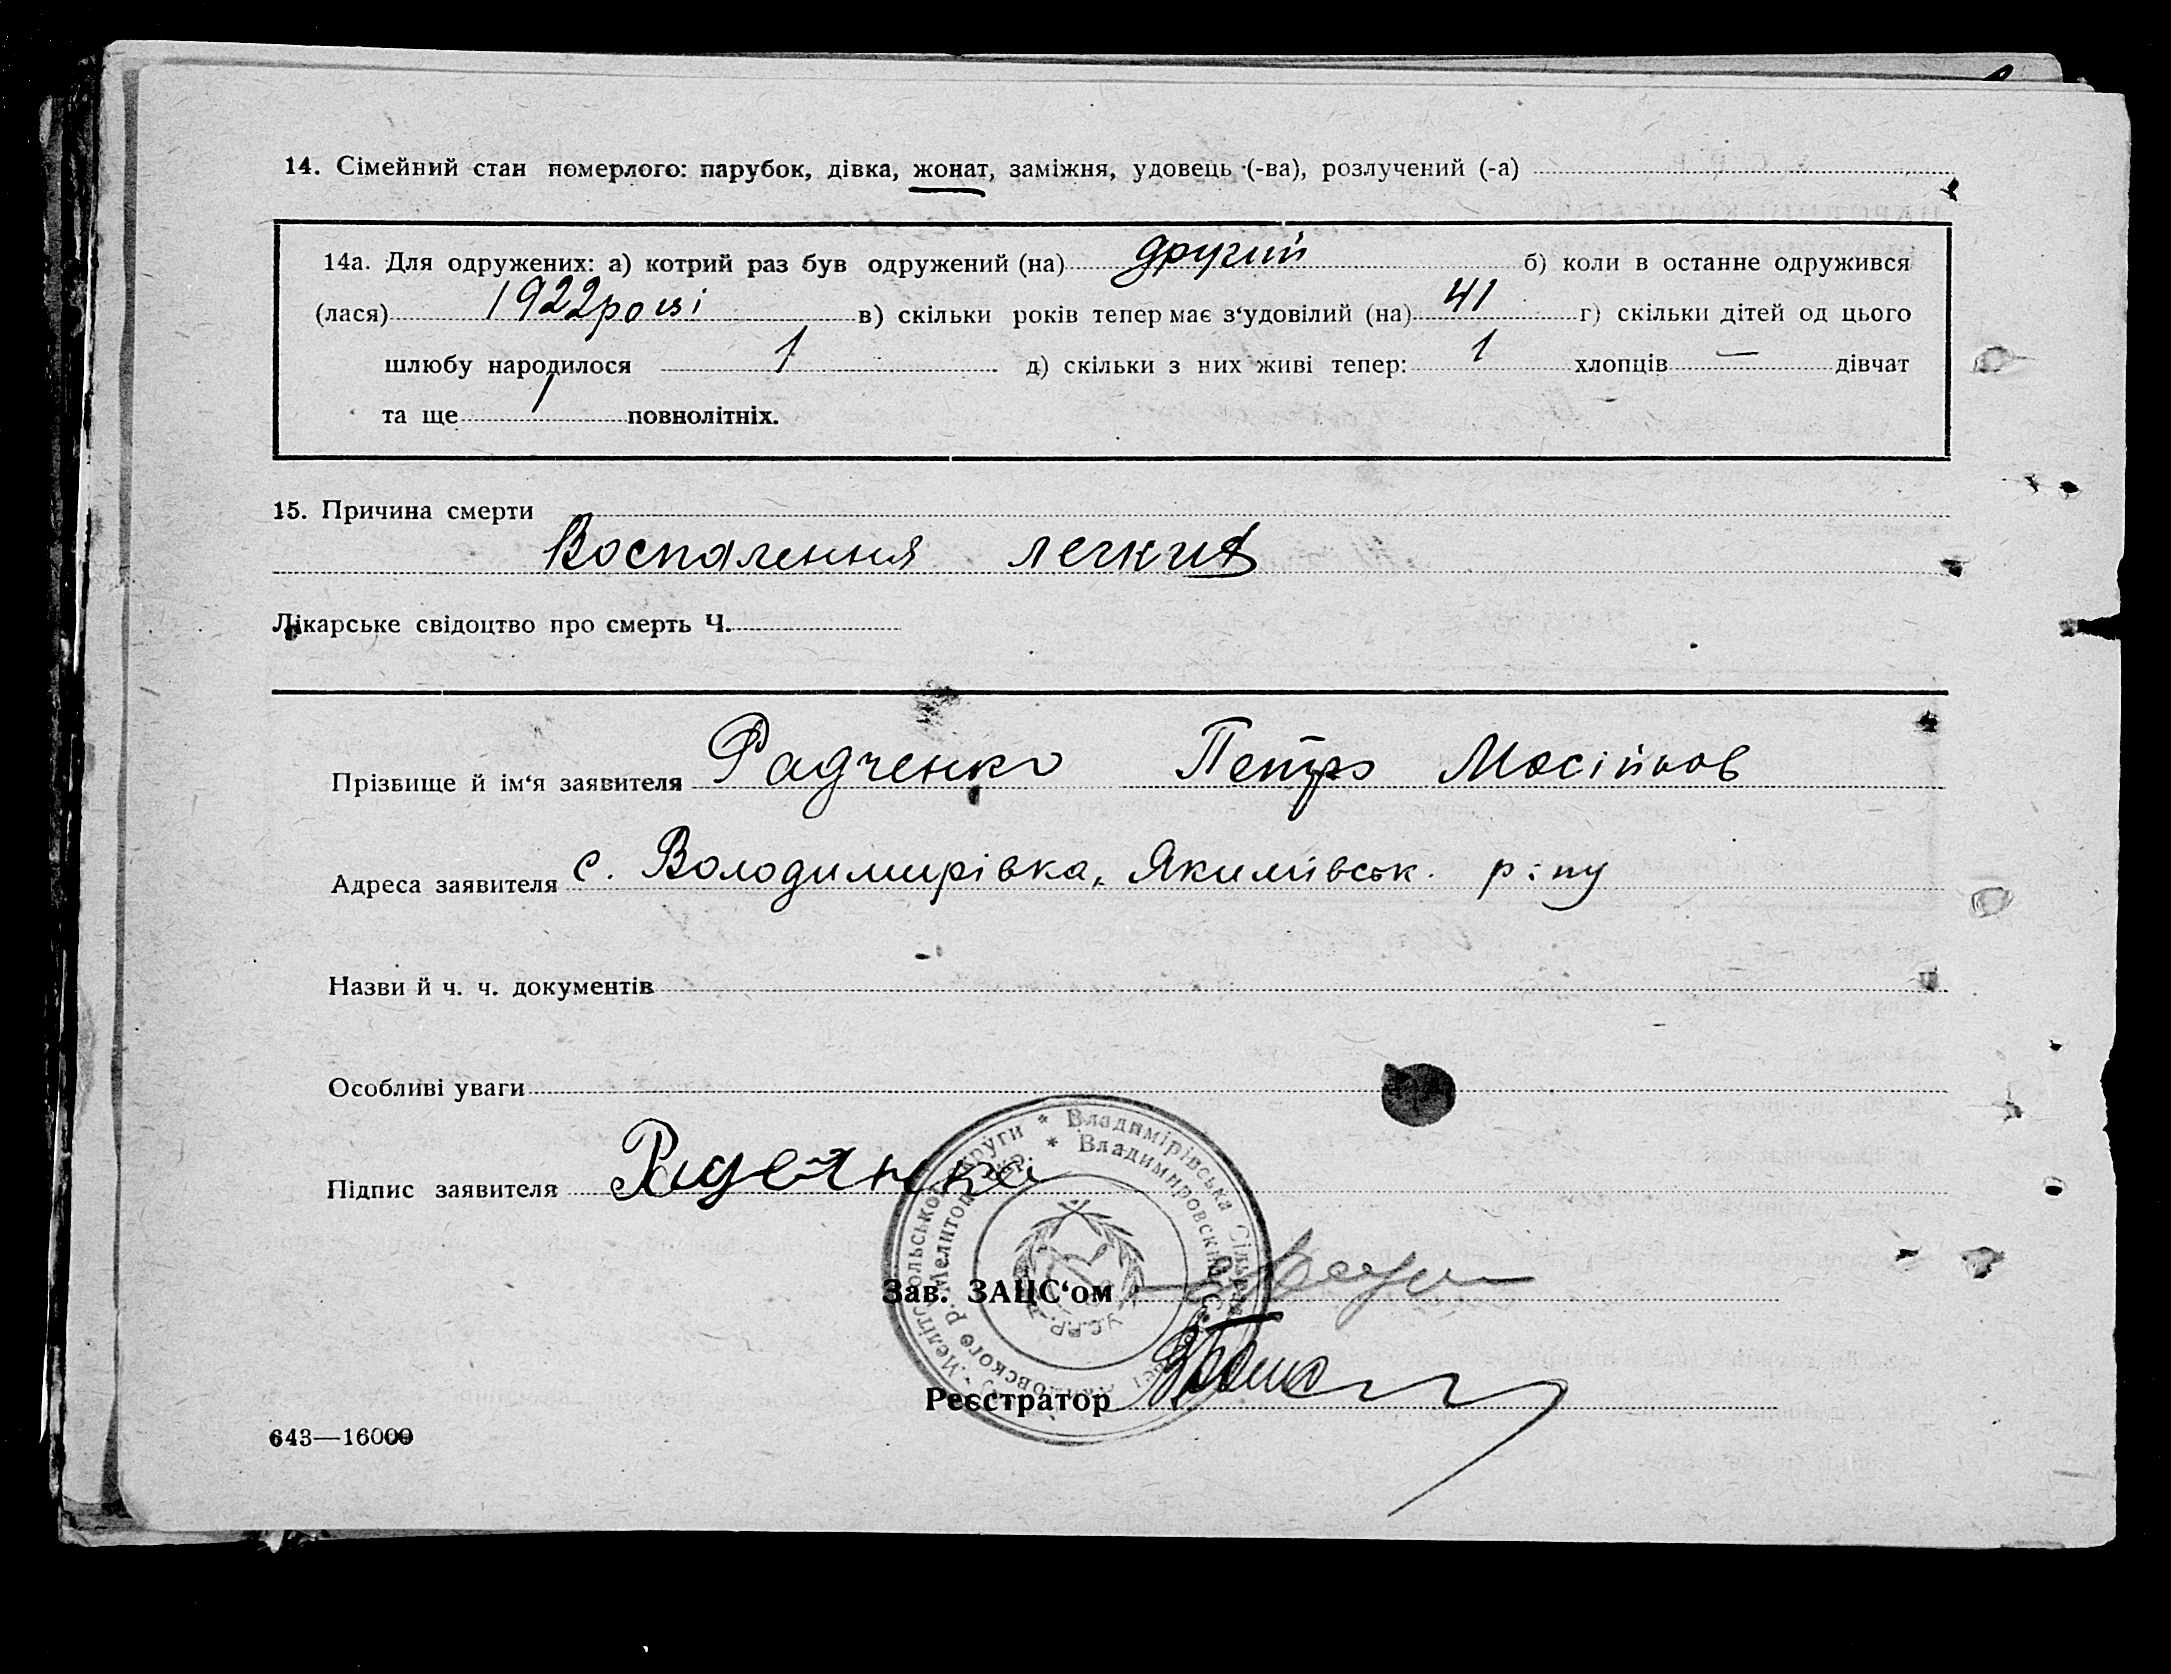 14. Сімейний стан померлого: парубок, дівка, жонат, заміжня, удовець (-ва), розлучений (-а)
14а. Для одружених: а) котрий раз був одружений (на) другий б) коли в останне одружився
(лася) 1922 році в) скільки років тепер має з‘удовілий (на) 41 г) скільки дітей од цього
шлюбу народилося 1 д) скільки з них живі тепер: 1 хлопців — дівчат
та ще 1 повнолітніх.
15. Причина смерти
Воспалення легких
Лікарське свідоцтво про смерть Ч.
Прізвище й ім‘я заявителя Радченко Петро Мосійков
Адреса заявителя с. Володимирівка, Якимівськ. р:ну
Назви й ч. ч. документів
Особливі уваги
Підпис заявителя Радченко
Владимірівська Сільрада Мелітопольської округи
Владимировский Мелитоп. окр.
У.С.Р.Р.
Зав. ЗАЦС‘ом
Реєстратор
643—16000